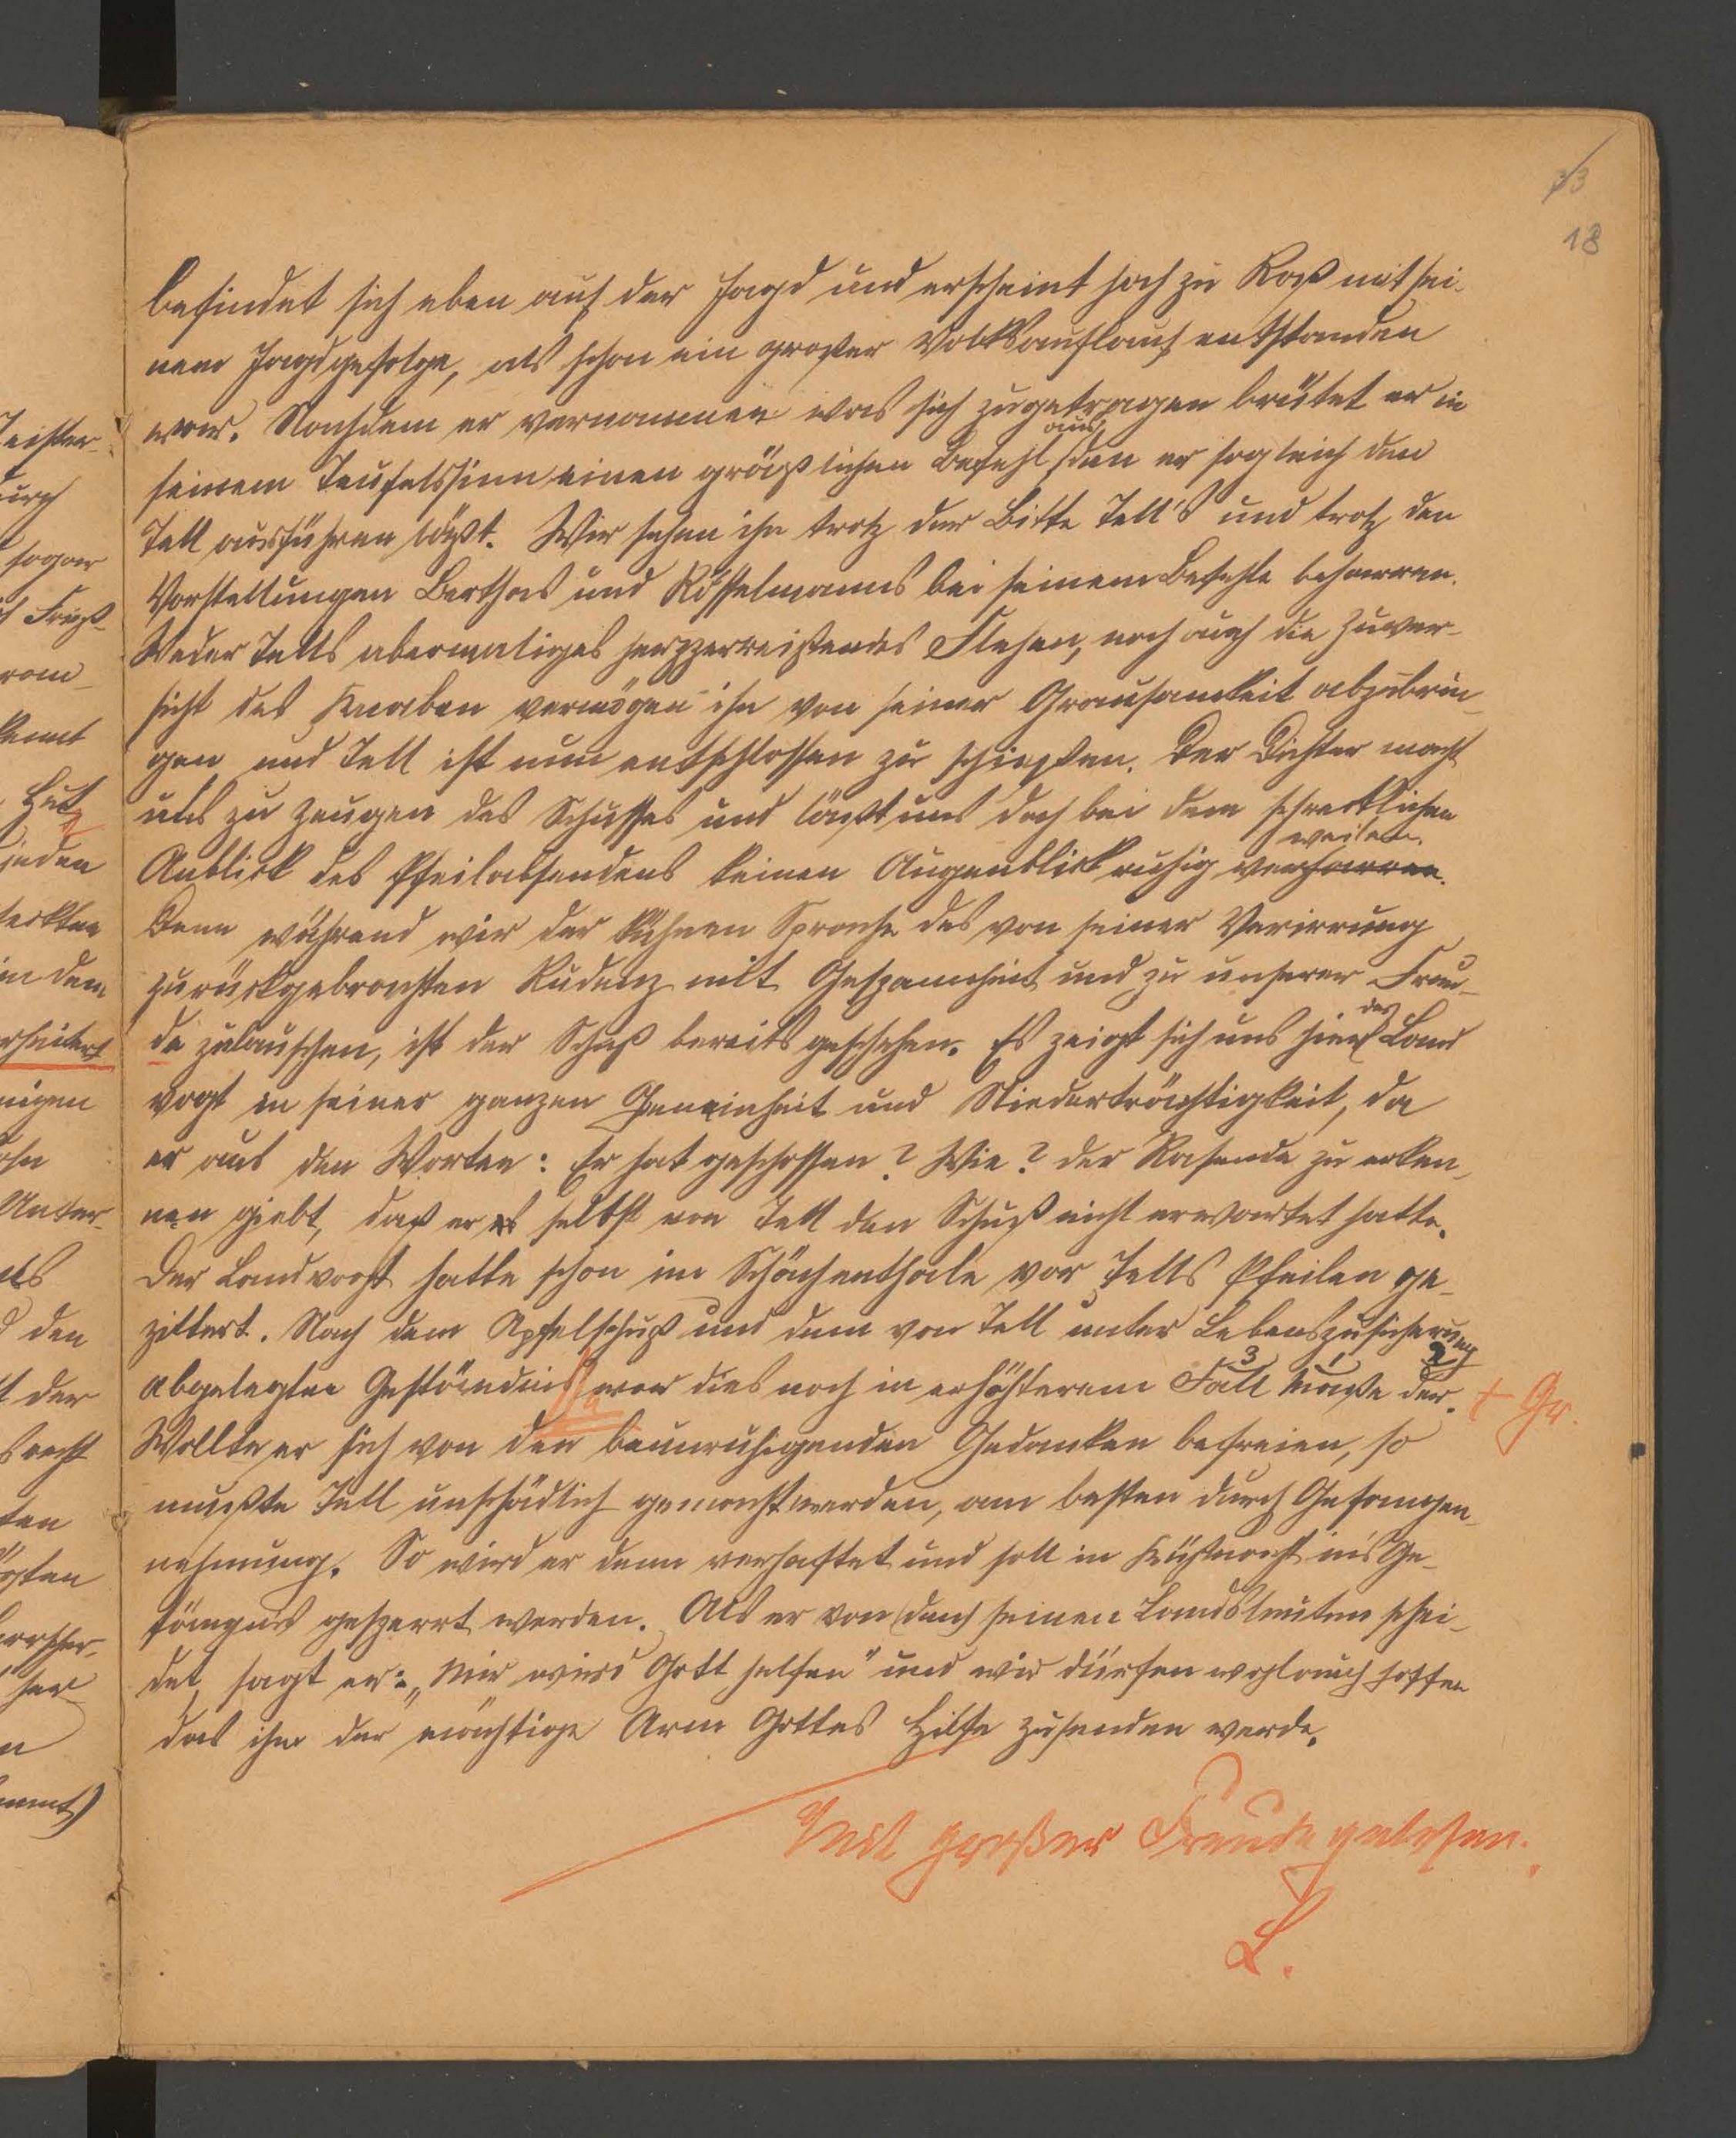 33
18
befindet sich eben auf der Jagd und erscheint hoch zu Roß mit sei-
nem Jagdgefolge, als schon ein großer Volksauflauf entstanden
war. Nachdem er vernommen was sich zugetragen brütet er in
seinem Teufelssinn einen gräßlichen Befehl aus, den er sogleich den
Tell ausführen läßt. Wir sehen ihn trotz der Bitte Tell's und trotz den
Vorstellungen Berthas und Rösselmanns bei seinem Befehle beharren.
Weder Tells abermaliges herzzerreißendes Flehen, noch auch die Zuver-
sicht des Knaben vermögen ihn von seiner Grausamkeit abzubrin-
gen und Tell ist nun entschlossen zu schießen. Der Dichter macht
uns zu Zeugen des Schusses und läßt uns doch bei dem schrecklichen
Anblick des Pfeilabsendens keinen Augenblick ruhig verharren. weilen.
Denn während wir der kühnen Sprache des von seiner Verirrung
zurückgebrachten Rudenz mit Gespanntheit und zu unserer Freu-
de zulauschen, ist der Schuß bereits geschehen. Es zeigt sich uns hier der Land
vogt in seiner ganzen Gemeinheit und Niederträchtigkeit, da
er aus den Worten: Er hat geschossen? Wie? der Rasende zu erken-
nen giebt, daß er es selbst von Tell den Schuß nicht erwartet hatte.
Der Landvogt hatte schon im Schächenthale vor Tells Pfeilen ge-
zittert. Nach dem Apfelschuß und dem von Tell unter Lebenszusicherung
abgelegten Geständniss war dies noch in erhöhterem Fall Maße der. + Gr.
3 1 2
Wollte er sich von den beunruhigenden Gedanken befreien, so
mußte Tell unschädlich gemacht werden, am besten durch Gefangen-
nehmung. So wird er denn verhaftet und soll in Küßnacht in's Ge-
fängnis gesperrt werden. Als er von (den) seinen Landsleuten schei-
det, sagt er: „Mir wird Gott helfen" und wir dürfen wohl auch hoffen
das ihm der mächtige Arm Gottes Hilfe zusenden werde.
Mit großer Freude gelesen.
L.